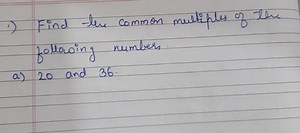 1) Find the common multiples of the
following numbers.
a) 20 and 36.